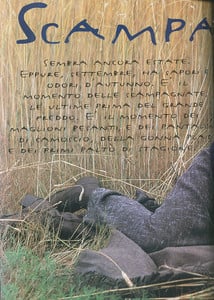 SCAMPA
SEMBRA ANCORA ESTATE.
EPPURE, SETTEMBRE, HA SAPORI E
ODORI D'AUTUNNO. E'
MOMENTO DELLE SCAMPAGNATE,
LE ULTIME PRIMA DEL GRANDE
FREDDO. E' IL MOMENTO DEI
MAGLIONI PESANTI, E DEI PANTA
DI CAMOSCIO, DELLA GONNA
E DEI PRIMI PALTO' DI STAGIONE.